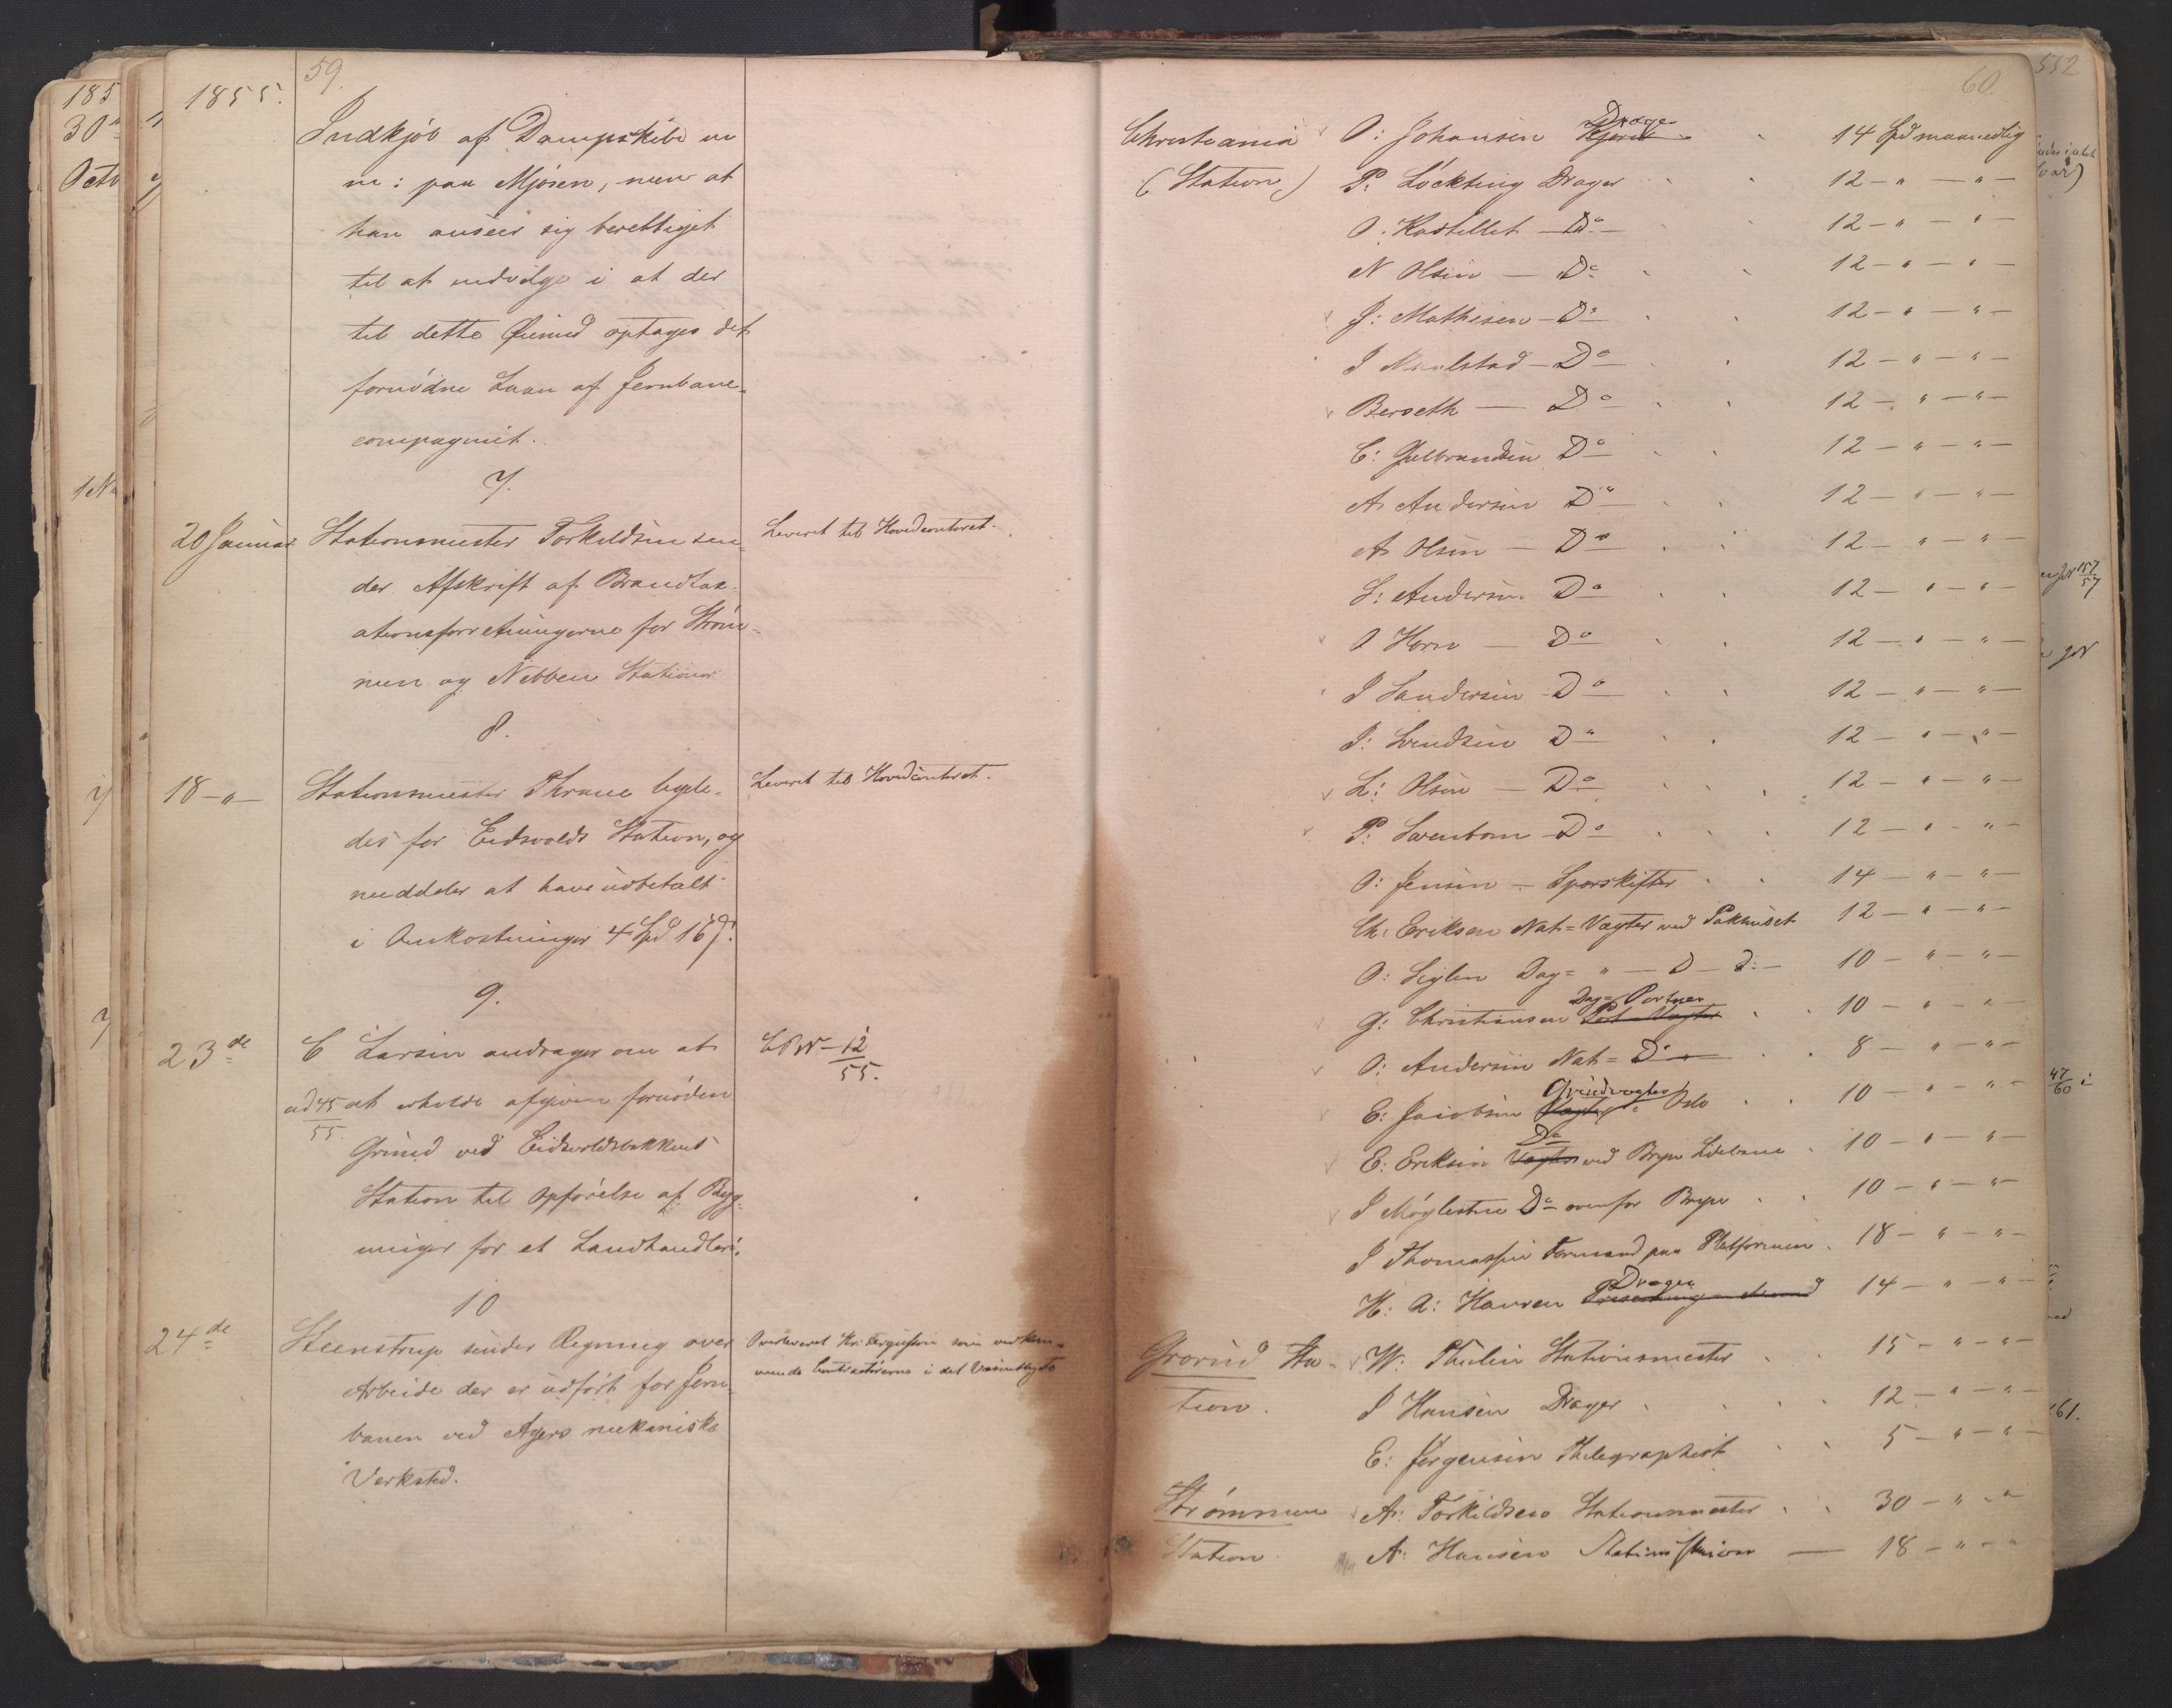 59.
1855.
Indkjøb af Dampskibe m
m: paa Mjøsen, men at
han anseer sig berettiget
til at indvilge i at der
til dette Øiemed optages det
fornødne Laan af Jernbane-
compagniet.
7.
20 Januar Stationsmester Torkildsen sen-
der Afskrift af Brandtax-
ationsforretningerne for Strøm-
men og Nebben Stationer
Leveret til Hovedcontoret.
8.
18 - " - Stationsmester Thrane ligele-
des for Eidsvolds Station, og
meddeler at have udbetalt
i Omkostninger 4 Spd 16 s.
Leveret til Hovedcontoret.
9.
23de C Larsen andrager om at
ad 45/55 at erholde afgiven fornøden
Grund ved Eidsvoldsbakkens
Station til Opførelse af Byg-
ninger for et Landhandleri.
12/55.
10
24de Steenstrup sender Regning over
Arbeide der er udført for Jern-
banen ved Agers mekaniske
Verksted.
Overleveret Hr: Fergusson som vedkom-
mende Contractørerne i det Væsentligste
60.
Christiania O: Johansen Drager 14 Spd maanedlig
(Station) P. Løckting Drager 12 - " - " -
O. Kastellet - Do 12 - " - " -
N Olsen - Do 12 - " - " -
J: Mathisen - Do 12 - " - " -
J - Do 12 - " - " -
Berseth - Do 12 - " - " -
C: Gulbrandsen Do 12 - " - " -
A Andersen Do 12 - " - " -
A Olsen - Do 12 - " - " -
L: Andersen Do 12 - " - " -
O Horn - Do 12 - " - " -
J Sandersen - Do 12 - " - " -
J: Svendsen Do 12 - " - " -
L: Olsen - Do 12 - " - " -
P. Svenborn - Do 12 - " - " -
O: Jensen - Sporskifter 14 - " - " -
Ch: Eriksen Nat = Vægter ved Pakhuset 12 - " - " -
O: Seglen Dag = " - D - d: - 10 - " - " -
G: Christiansen Dag = Portner Port = Vægter 10 - " - " -
O: Andersen Nat = Do 8 - " - " -
E: Jacobsen Grindvogter Oslo 10 - " - " -
E: Eriksen Do Vægter ved Bryn Sidebane 10 - " - " -
J Møglestue Do ovenfor Bryn 10 - " - " -
J Thomassen Formand paa Platformen 18 - " - " -
H: A: Hansen Drager 14 - " - " -
Grorud Sta- W: Thulin Stationsmester 15 - " - " -
tion. J Hansen Drager 12 - " - " -
E: Jørgensen Thelegraphist 5 - " - " -
Strømmen A: Torkildsen Stationsmester 30 - " - " -
Station A: Hansen 18 - " - " -